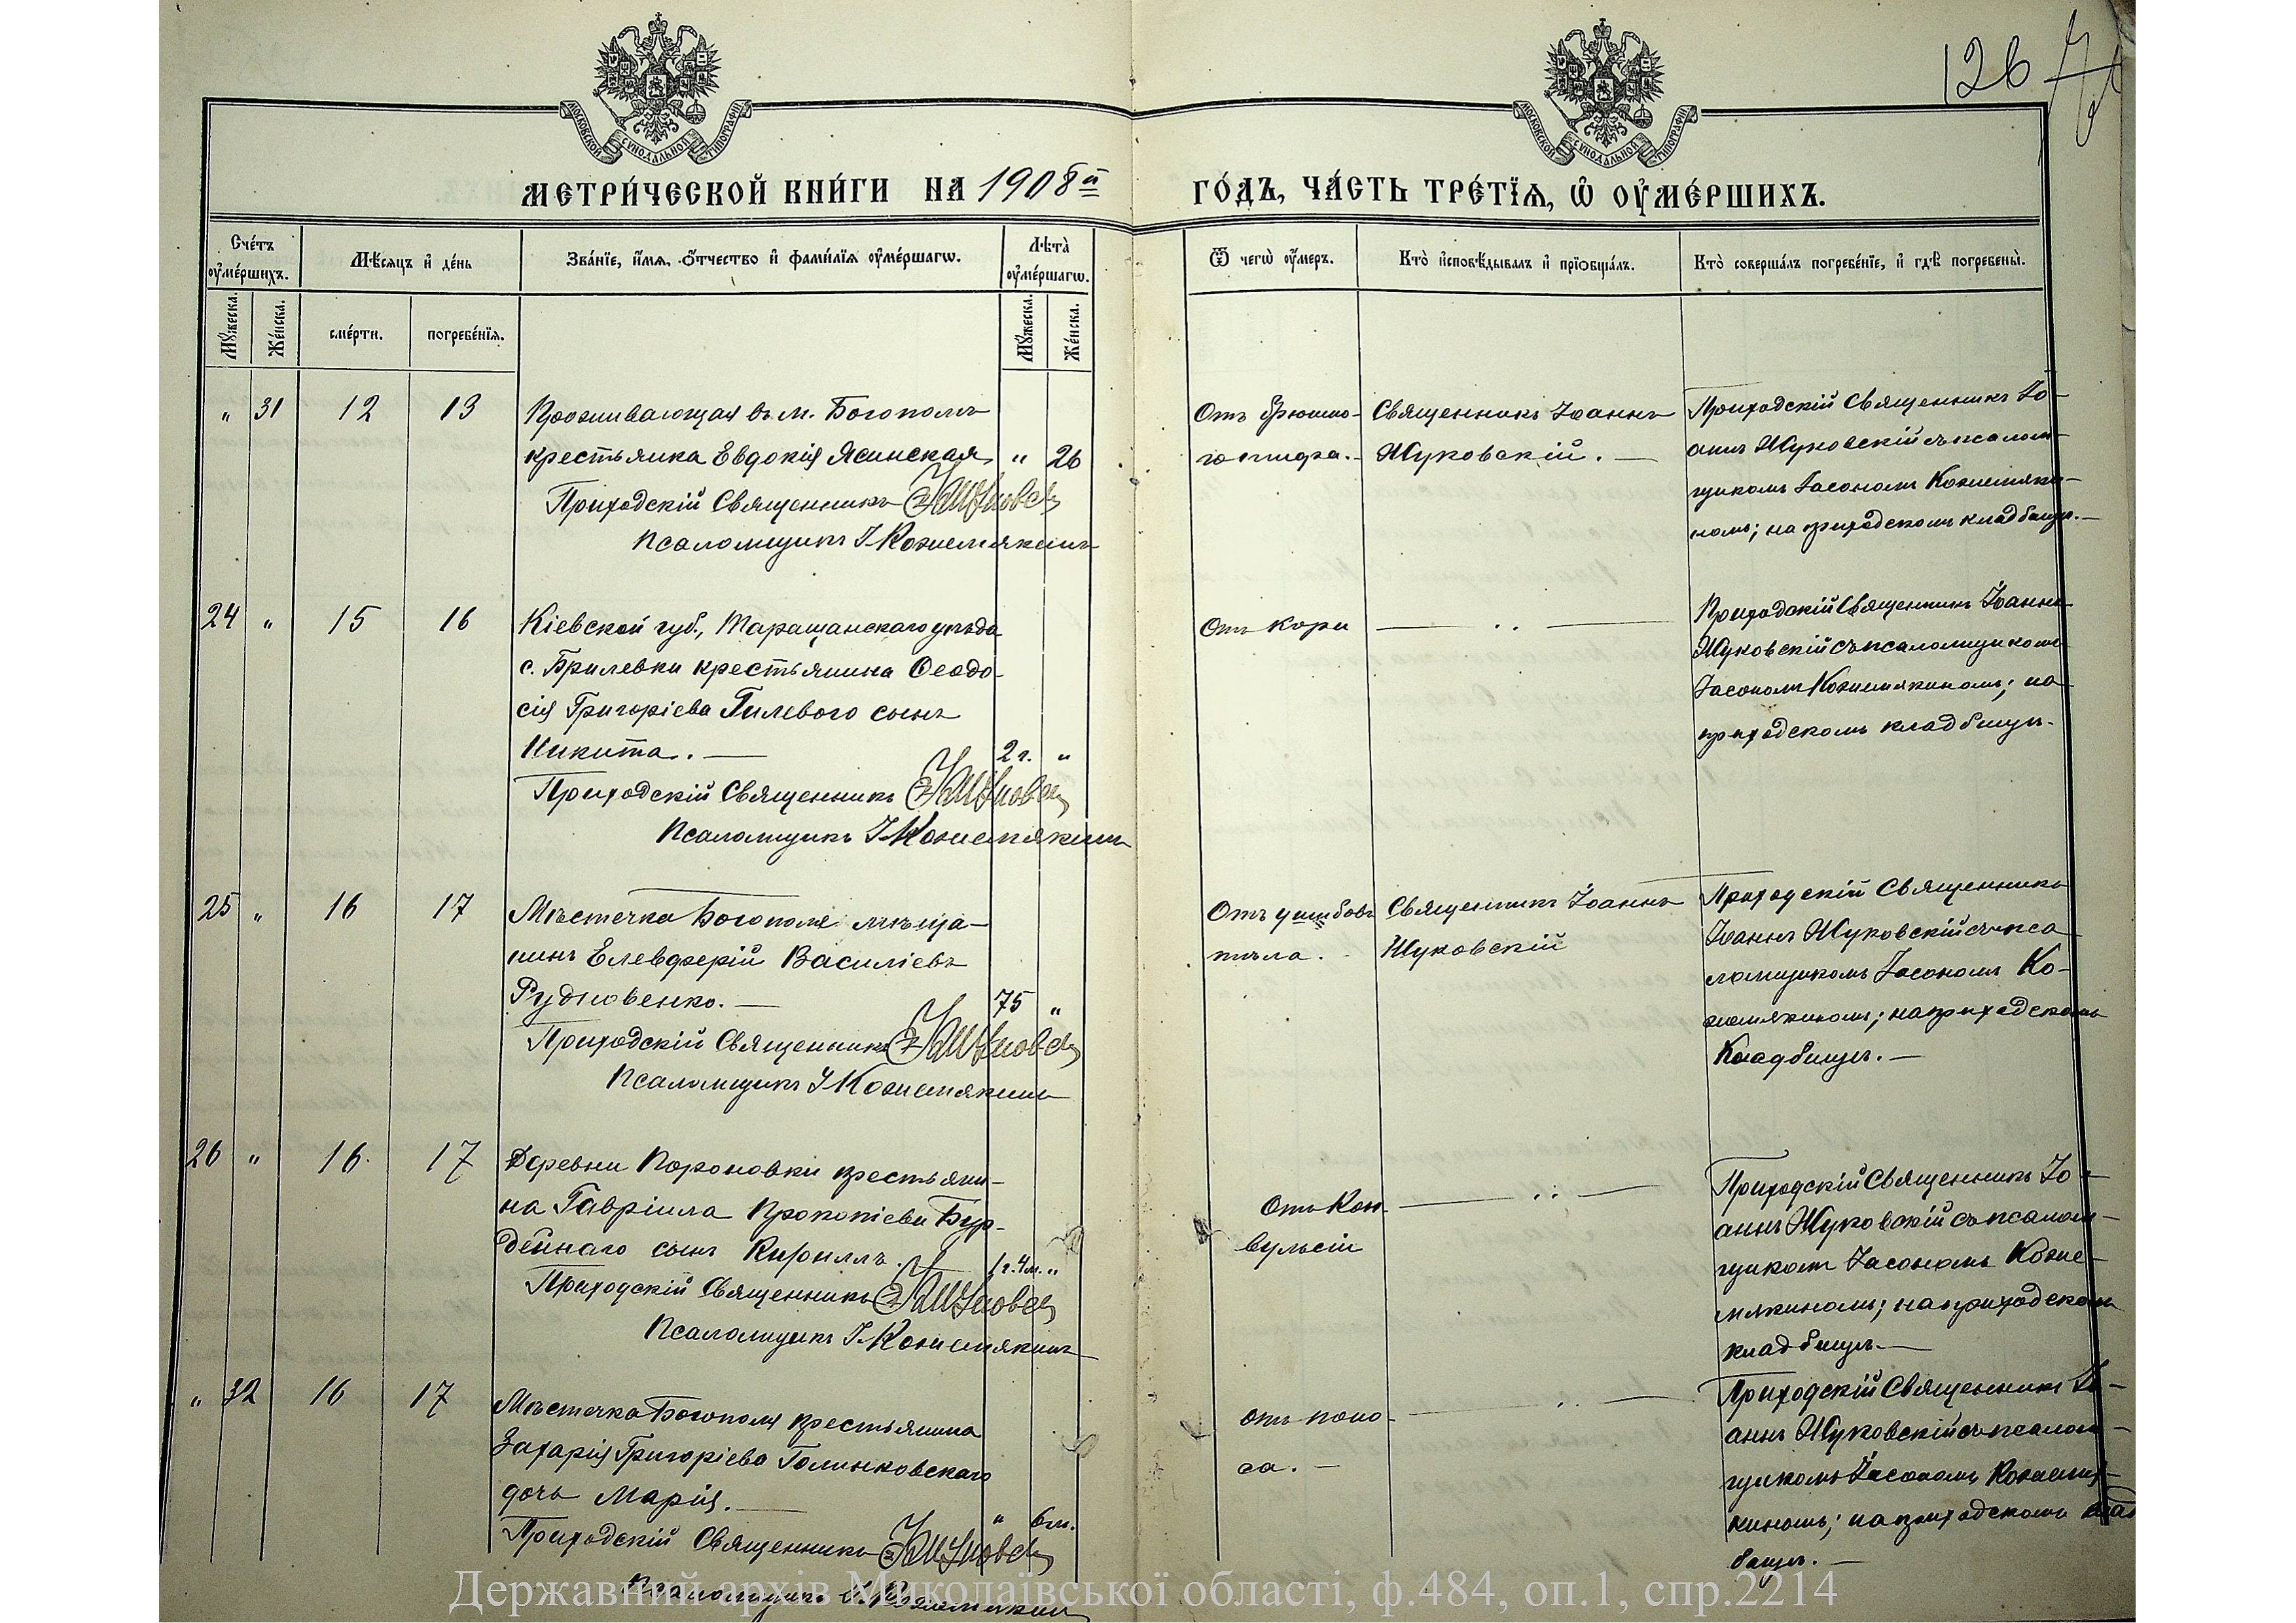 126
МОСКОВСКОЙ СУНОДАЛЬНОЙ ТИПОГРАФІИ
МОСКОВСКОЙ СУНОДАЛЬНОЙ ТИПОГРАФІИ
МЕТРИ́ЧЕСКОЙ КНИ́ГИ НА 1908й
ГО́ДЪ, ЧА́СТЬ ТРЕ́ТЇѦ, Ѡ҆ ОУ҆МЕ́РШИХЪ.
Сче́тъ оу҆ме́ршихъ.
Мѣ́сяцъ и҆ де́нь
Зва́нїе, и҆́мѧ, ѻ҆́тчество и҆ фами́лїѧ оу҆ме́ршагѡ.
Лѣта̀ оу҆ме́ршагѡ.
Ѿ чегѡ̀ оу҆́меръ.
Кто̀ и҆сповѣ́дывалъ и҆ прїѡбща́лъ.
Кто̀ соверша́лъ погребе́нїе, и҆ гдѣ̀ погребены̀.
Мꙋ́жеска.
Же́нска.
сме́рти.
погребе́нїѧ.
Мꙋ́жеска.
Же́нска.
" 31 12 13
Проживающая въ м. Богополѣ
крестьянка Евдокія Ясинская " 26
Приходскій Священникъ
Псаломщикъ І. Кожемякинъ
Отъ брюшно-
го тифа.
Священникъ Іоаннъ
Жуковскій. —
Приходскій Священникъ Іо-
аннъ Жуковскій съ псалом-
щикомъ Іасономъ Кожемяки-
номъ; на приходскомъ кладбищѣ. —
24 " 15 16
Кіевской губ., Таращанскаго уѣзда
с. Брилевки крестьянина Ѳеодо-
сія Григорієва Гилевого сынъ
Никита. — 2 г. "
Приходскій Священникъ
Псаломщикъ І. Кожемякинъ
Отъ кори — " —
Приходскій Священникъ Іоаннъ
Жуковскій съ псаломщикомъ
Іасономъ Кожемякиномъ; на
приходскомъ кладбищѣ.
25 " 16 17
Мѣстечка Богополя мѣща-
нинъ Елевферій Василіевъ
Рудковенко. — 75 "
Приходскій Священникъ
Псаломщикъ І. Кожемякинъ
Отъ ушибовъ
тѣла.
Священникъ Іоаннъ
Жуковскій
Приходскій Священникъ
Іоаннъ Жуковскій съ пса
ломщикомъ Іасономъ Ко-
жемякиномъ; на приходскомъ
кладбищѣ. —
26 " 16 17
Деревни Короновки крестьяни-
на Гавріила Прокопіева Бур-
дейнаго сынъ Кириллъ. 1 г. 4 м. "
Приходскій Священникъ
Псаломщикъ І. Кожемякинъ
Отъ кон-
вульсіи
— " —
Приходскій Священникъ Іо-
аннъ Жуковскій съ псалом-
щикомъ Іасономъ Коже-
мякиномъ; на приходскомъ
кладбищѣ. —
" 32 16 17
Мѣстечка Богополя крестьянина
Захарія Григоріева Голинковскаго
дочь Марія. — " 6 м.
Приходскій Священникъ
Псаломщикъ І. Кожемякин
отъ поно-
са. —
— " —
Приходскій Священникъ Іо-
аннъ Жуковскій съ псалом-
щикомъ Іасономъ Кожемя-
киномъ; на приходскомъ клад
бищѣ. —
Державний архів Миколаївської області, ф.484, оп.1, спр.2214